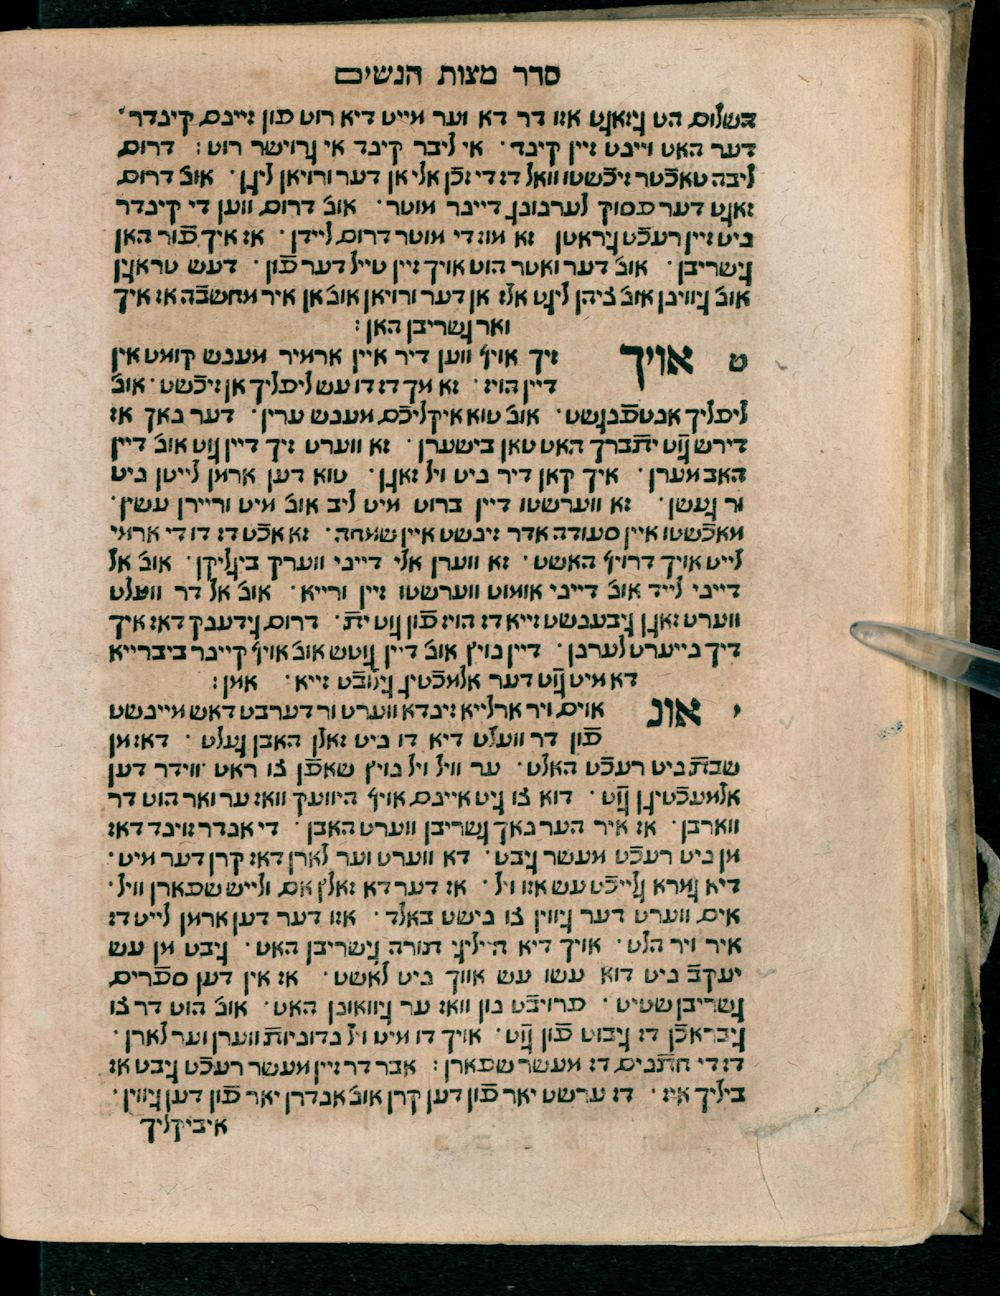 סדר מצות הנשים
השלום הט גיזאגט אזו דר דא וער מייט דיא רוט פון זיינם קינדר׳
דער האט ויינט זיין קינד · אי ליבר קינד אי גרוישר רוט : דרום
ליבה טאכֿטר זיכֿשטו וואל דז די זכֿן אלי אן דער ורויאן ליגן · אונ׳ דרום
זאגט דער פסוק לערנונג דיינר מוטר · אונ׳ דרום ווען די קינדר
ניט זיין רעכֿט גיראטן זא מוז די מוטר דרום ליידן · אז איך פֿור האן
גישריבן · אונ׳ דער ואטר הוט אויך זיין טייל דער פֿון · דעש טראגן
אונ׳ גיווינן אונ׳ ציהן ליגט אלז אן דער ורויאן אונ׳ אן איר מחשבֿה אז איך
ואר גשריבן האן :
ט אויך זיך אויף ווען דיר איין ארמיר מענש קומט אין
דיין הויז · זא מך דז דו עש ליפליך אן זיכֿשט · אונ׳
ליפליך אנטפֿנגשט · אונ׳ טוא איקליכֿם מענש ערין · דער נאך אז
דירש גוֹט יתֿברך האט טאן בישערן · זא ווערט זיך דיין גוט אונ׳ דיין
האב מערן · איך קאן דיר ניט ויל זאגן · טוא דען ארמן לייטן ניט
ור געשן · זא ווערשטו דיין ברוט מיט ליב אונ׳ מיט ורײרן עשין ·
מאכֿשטו איין סעודה אדר זינשט איין שמחה · זא אכֿט דז דו די ארמי
לייט אויך דרויף האשט · זא ווערן אלי דייני ווערק ביגליקן · אונ׳ אל
דייני לייד אונ׳ דייני אומוט ווערשטו זיין ורייא · אונ׳ אל דר וועלט
ווערט זאגן גיבענשט זייא דז הויז פֿון גוט ית · דרום גידענק דאז איך
דיך נייערט לערנן · דיין נויץ אונ׳ דיין גוטש אונ׳ אויף קיינר ביברייא
דא מיט גוֹט דער אלמכֿטיג גילובֿט זייא · אמן :
י אונ׳ אוים ויר ארלייא זינד א ווערט ור דערבט דאש מיינשט
פֿון דר וועלט דיא דו ניט זאלן האבן געלט · דאז מן
שבתֿ ניט רעכֿט האלט · ער וויל ויל נויץ שאפֿן צו ראט ווידר דען
אלמעכֿטיגן גוֹט · דוא צו גיט איינם אויף היוועק וואז ער ואר הוט דר
ווארבן · אז איר הער נאך גשריבן ווערט האבן · די אנדר זוינד דאז
מן ניט רעכֿט מעשר גיבט · דא ווערט וער לארן דאז קרן דער מיט ·
דיא גמרא גלייכֿט עש אזו ויל · אז דער דא זאלץ אם ולייש שפארן וויל ·
אים ווערט דער גיווין צו נישט באלד · אזו דער דען ארמן לייט דז
איר ויר הלט · אויך דיא הייליגי תורה גישריבן האט · גיבט מן עש
יעקבֿ ניט דוא עשו עש אווך ניט לאשט · אז אין דען ספֿרים
גשריבן שטיט · פרויבֿט נון וואז ער גיוואונן האט · אונ׳ הוט דר צו
גיבראכֿן דז גיבוט פֿון גוֹט · אויך דו מיט ויל נדוניותֿ ווערן וער לארן
דז די חתֿנים דז מעשר שפארן : אבר דר זיין מעשר רעכֿט גיבט אז
ביליך איז · דז ערשט יאר פֿון דען קרן אונ׳ אנדרן יאר פֿון דען גיווין ·
איביקליך